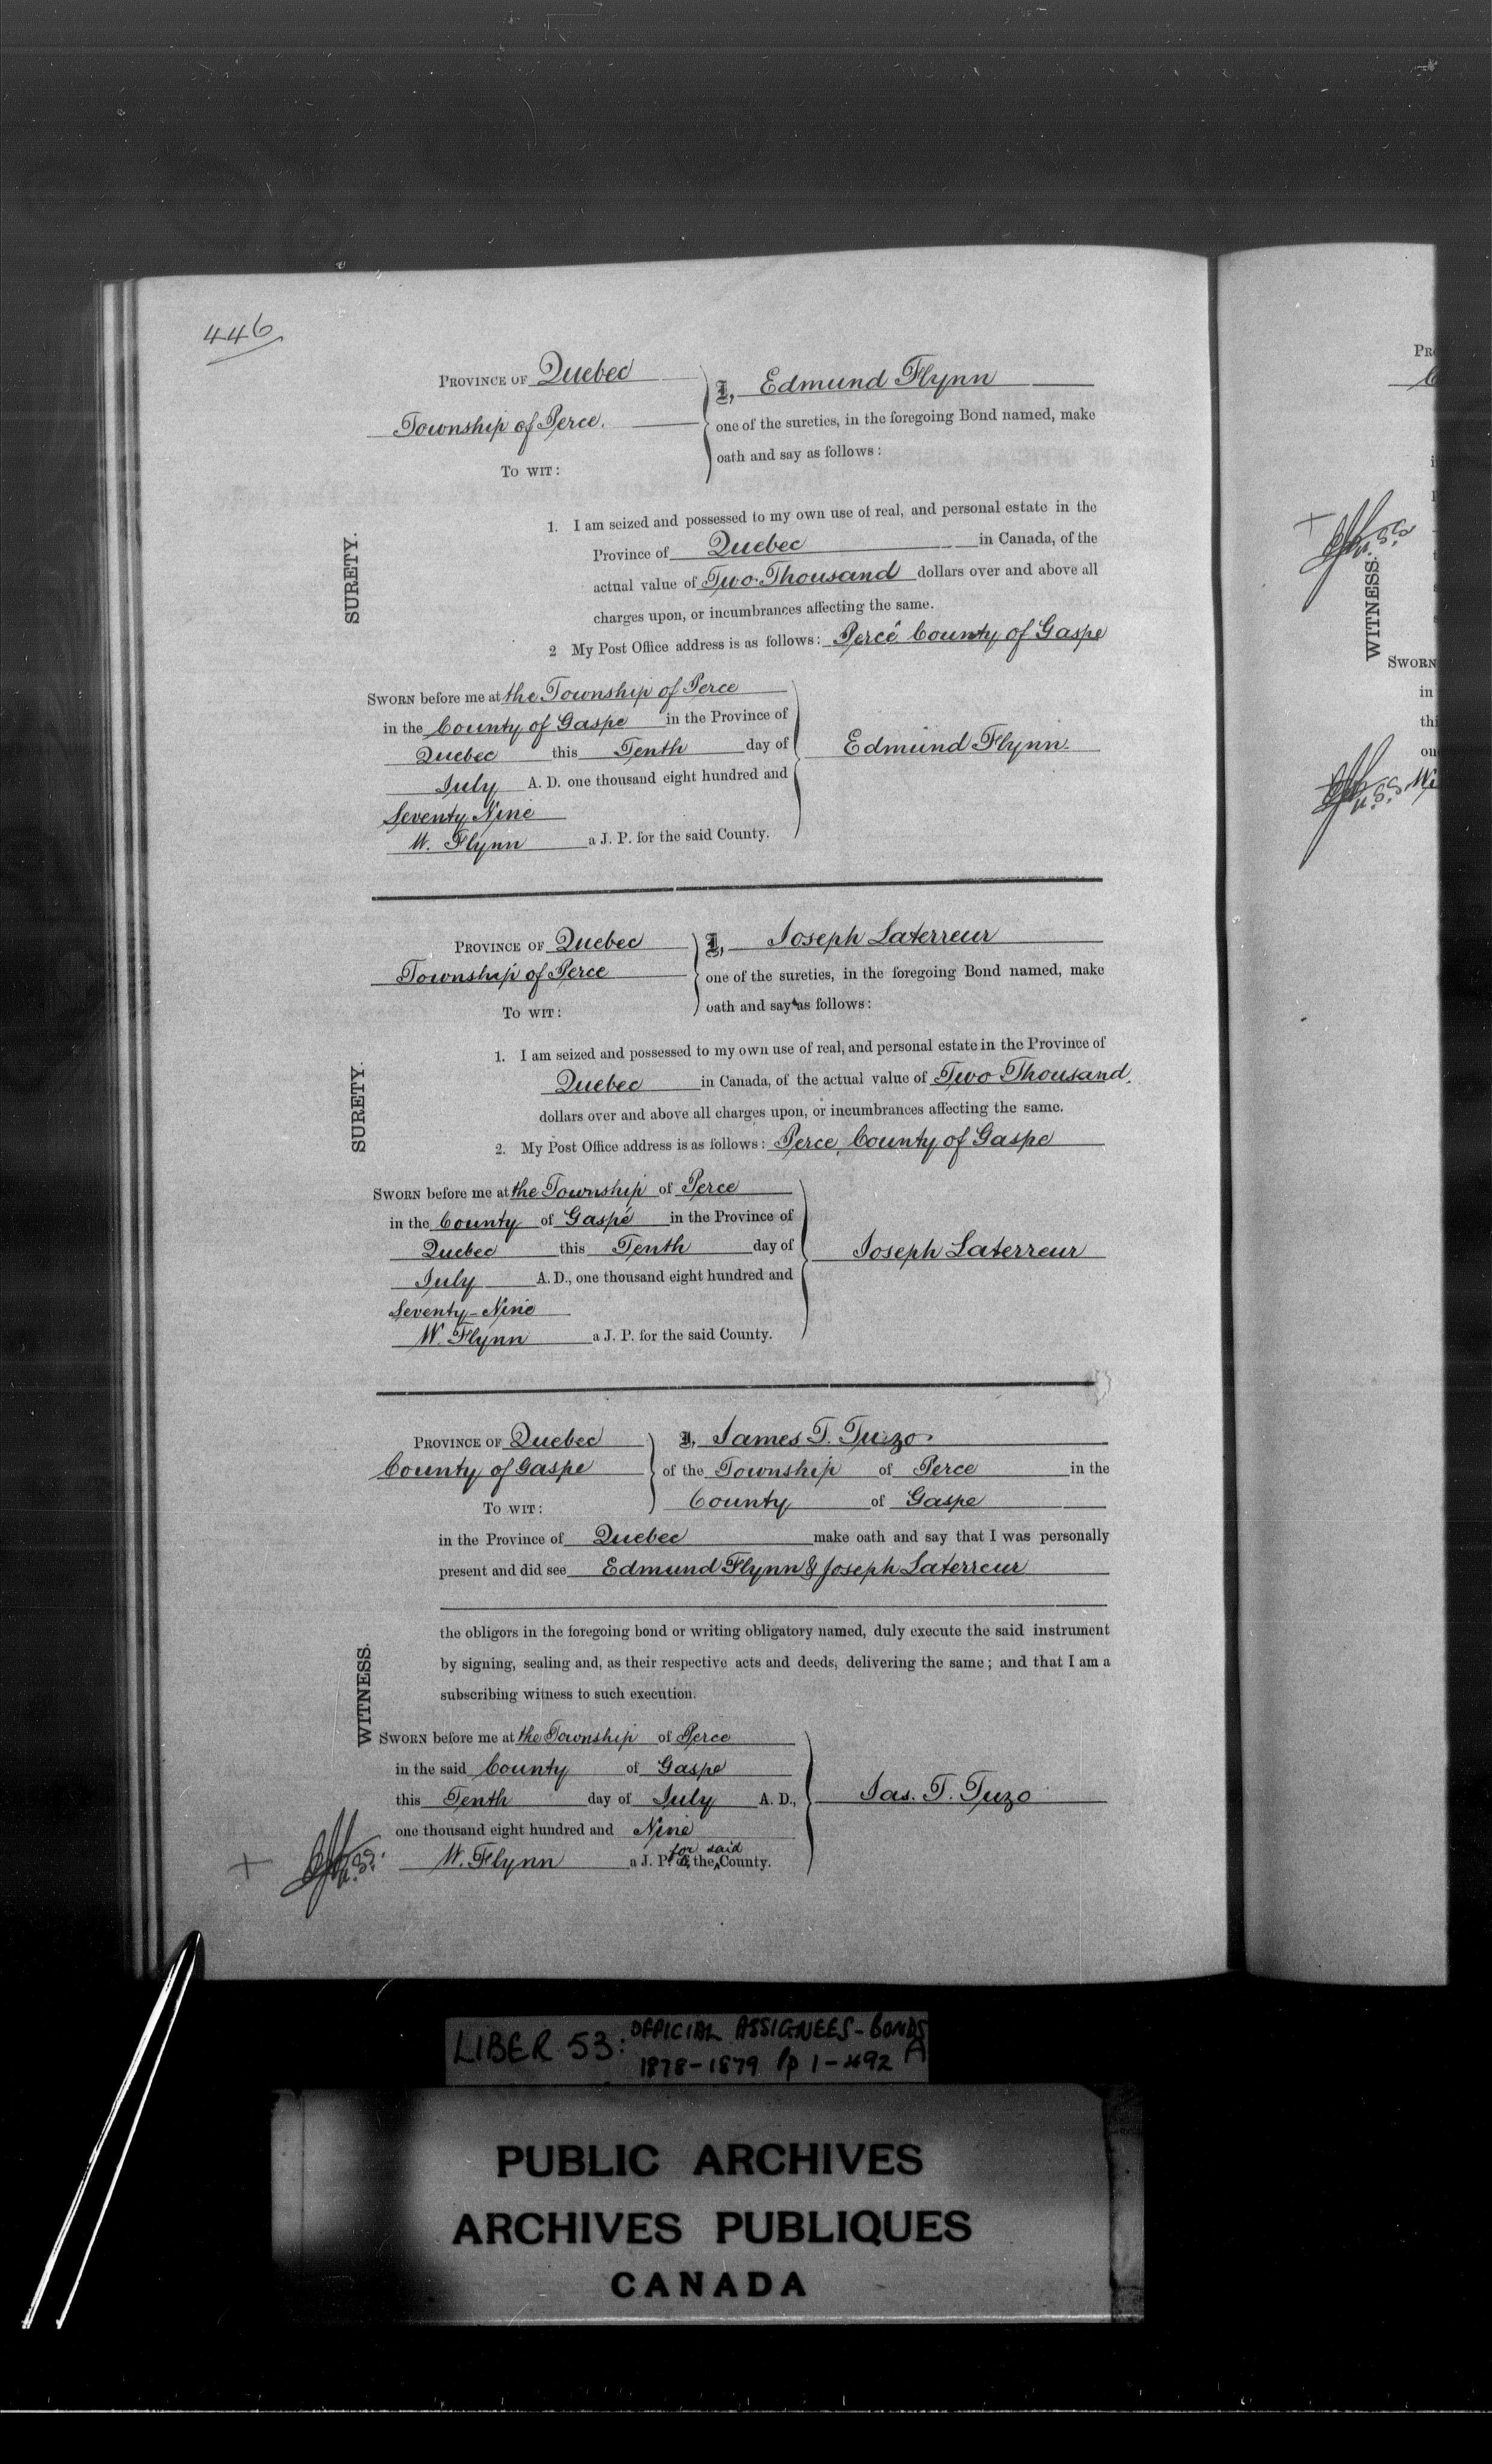 446
PROVINCE OF Quebec
Township of Perce.
TO WIT:
I, Edmund Flynn
one of the sureties, in the foregoing Bond named, make
oath and say as follows:
SURETY.
1. I am seized and possessed to my own use of real, and personal estate in the
Province of Quebec in Canada, of the
actual value of Two Thousand dollars over and above all
charges upon, or incumbrances affecting the same.
2 My Post Office address is as follows: Percé County of Gaspe
SWORN before me at the Township of Perce
in the County of Gaspe in the Province of
Quebec this Tenth day of
July A. D. one thousand eight hundred and
Seventy Nine
W. Flynn a J. P. for the said County.
Edmund Flynn.
PROVINCE OF Quebec
Township of Perce
TO WIT:
I, Joseph Laterreur
one of the sureties, in the foregoing Bond named, make
oath and say as follows:
SURETY.
1. I am seized and possessed to my own use of real, and personal estate in the Province of
Quebec in Canada, of the actual value of Two Thousand.
dollars over and above all charges upon, or incumbrances affecting the same.
2. My Post Office address is as follows: Perce, County of Gaspe
SWORN before me at the Township of Perce
in the County of Gaspé in the Province of
Quebec this Tenth day of
July A. D., one thousand eight hundred and
Seventy-Nine
W. Flynn a J. P. for the said County.
Joseph Laterreur
PROVINCE OF Quebec
County of Gaspe
TO WIT:
I, James T. Tuzo.
of the Township of Perce in the
County of Gaspe
in the Province of Quebec make oath and say that I was personally
present and did see Edmund Flynn & Joseph Laterreur
the obligors in the foregoing bond or writing obligatory named, duly execute the said instrument
by signing, sealing and, as their respective acts and deeds, delivering the same; and that I am a
subscribing witness to such execution.
WITNESS.
SWORN before me at the Township of Perce
in the said County of Gaspe
this Tenth day of July A. D.,
one thousand eight hundred and Nine
W. Flynn a J. P. for the said County.
Jas. T. Tuzo
WITNESS.
SWORN
in
LIBER 53: OFFICIAL ASSIGNEES-BONDS
1878-1879 Pp 1-492 A
PUBLIC ARCHIVES
ARCHIVES PUBLIQUES
CANADA